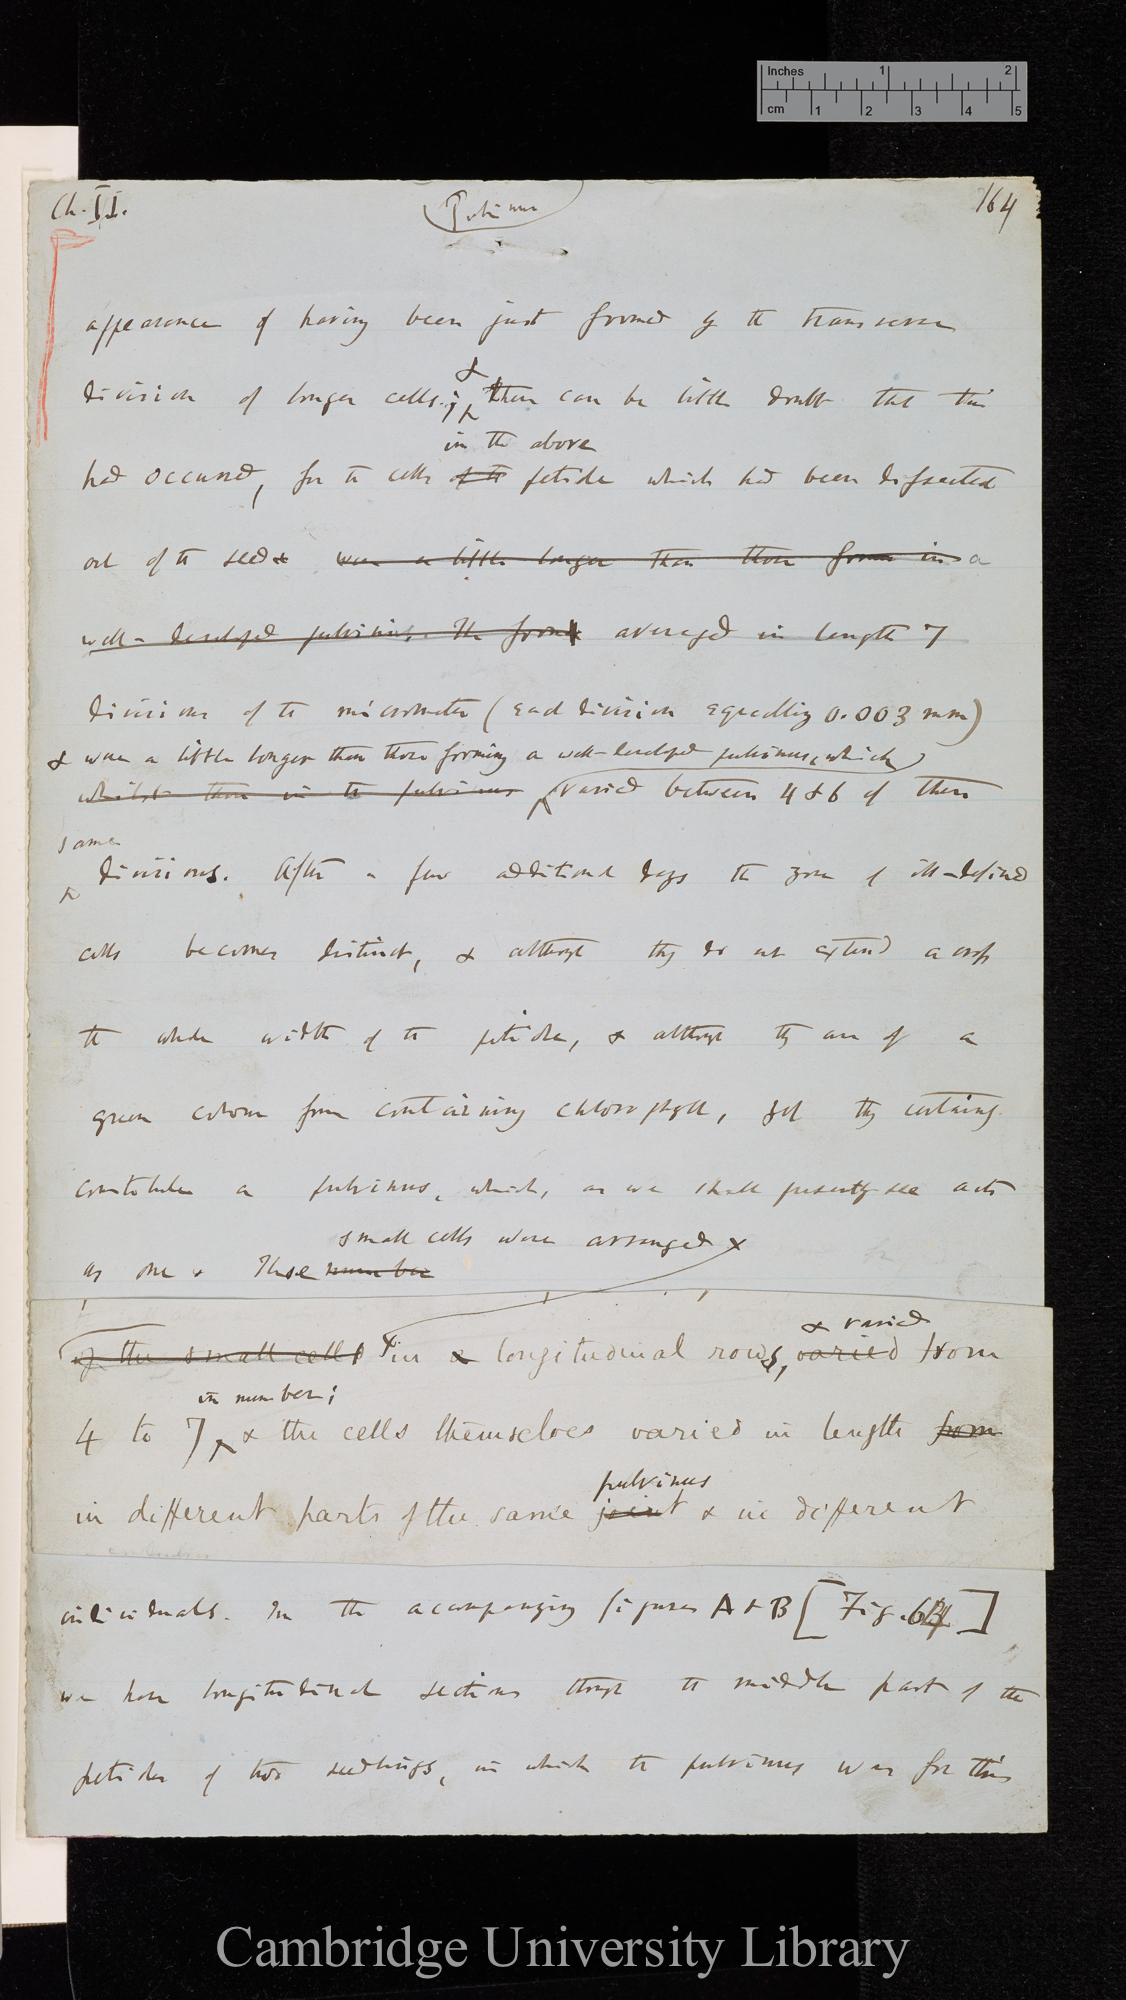 Inches 1 2
cm 1 2 3 4 5
Ch. II.
Pulvinus
164
appearance of having been just formed by the transverse
division of longer cells.; & there can be little doubt that this
in the above
had occurred, for the cells of the petioles which had been dissected
out of the seeds were a little longer than those formed in a
well-developed pulvinus. The former averaged in length 7
divisions of the micrometer (each division equalling 0.003 mm)
& were a little longer than those forming a well-developed pulvinus, which
whilst those in the pulvinus varied between 4 & 6 of these
same
divisions. After a few additional days the zone of ill-defined
cells becomes distinct, & although they do not extend across
the whole width of the petiole, & although they are of a
green colour from containing chlorophyll, yet they certainly
constitute a pulvinus, which, as we shall presently see acts
small cells were arranged
as one. These number
of the small cells in a longitudinal rows, varied from
& varied
in number;
4 to 7, & the cells themselves varied in length from
pulvinus
in different parts of the same joint & in different
individuals. In the accompanying figures A & B [Fig. 64]
we have longitudinal sections through the middle part of the
petioles of two seedlings, in which the pulvinus was for this
Cambridge University Library